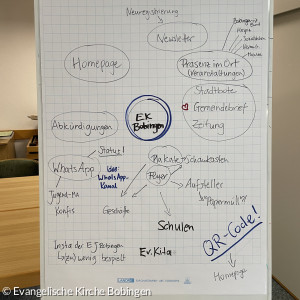 Neuregistrierung
Newsletter
Homepage
Präsenz im Ort
(Veranstaltungen)
Stadtbote
Gemeindebrief
Zeitung
EK
Bobingen
Abkündigungen
Status!
WhatsApp
Idee:
WhatsApp-
Kanal
Jugend-MA
Konfis
Plakate > Schaukasten
Flyer
Geschäfte
Aufsteller
Schulen
Ev. Kita
QR-Code!
Homepage
Insta der EJ Bobingen
wenig bespielt
© Evangelische Kirche Bobingen